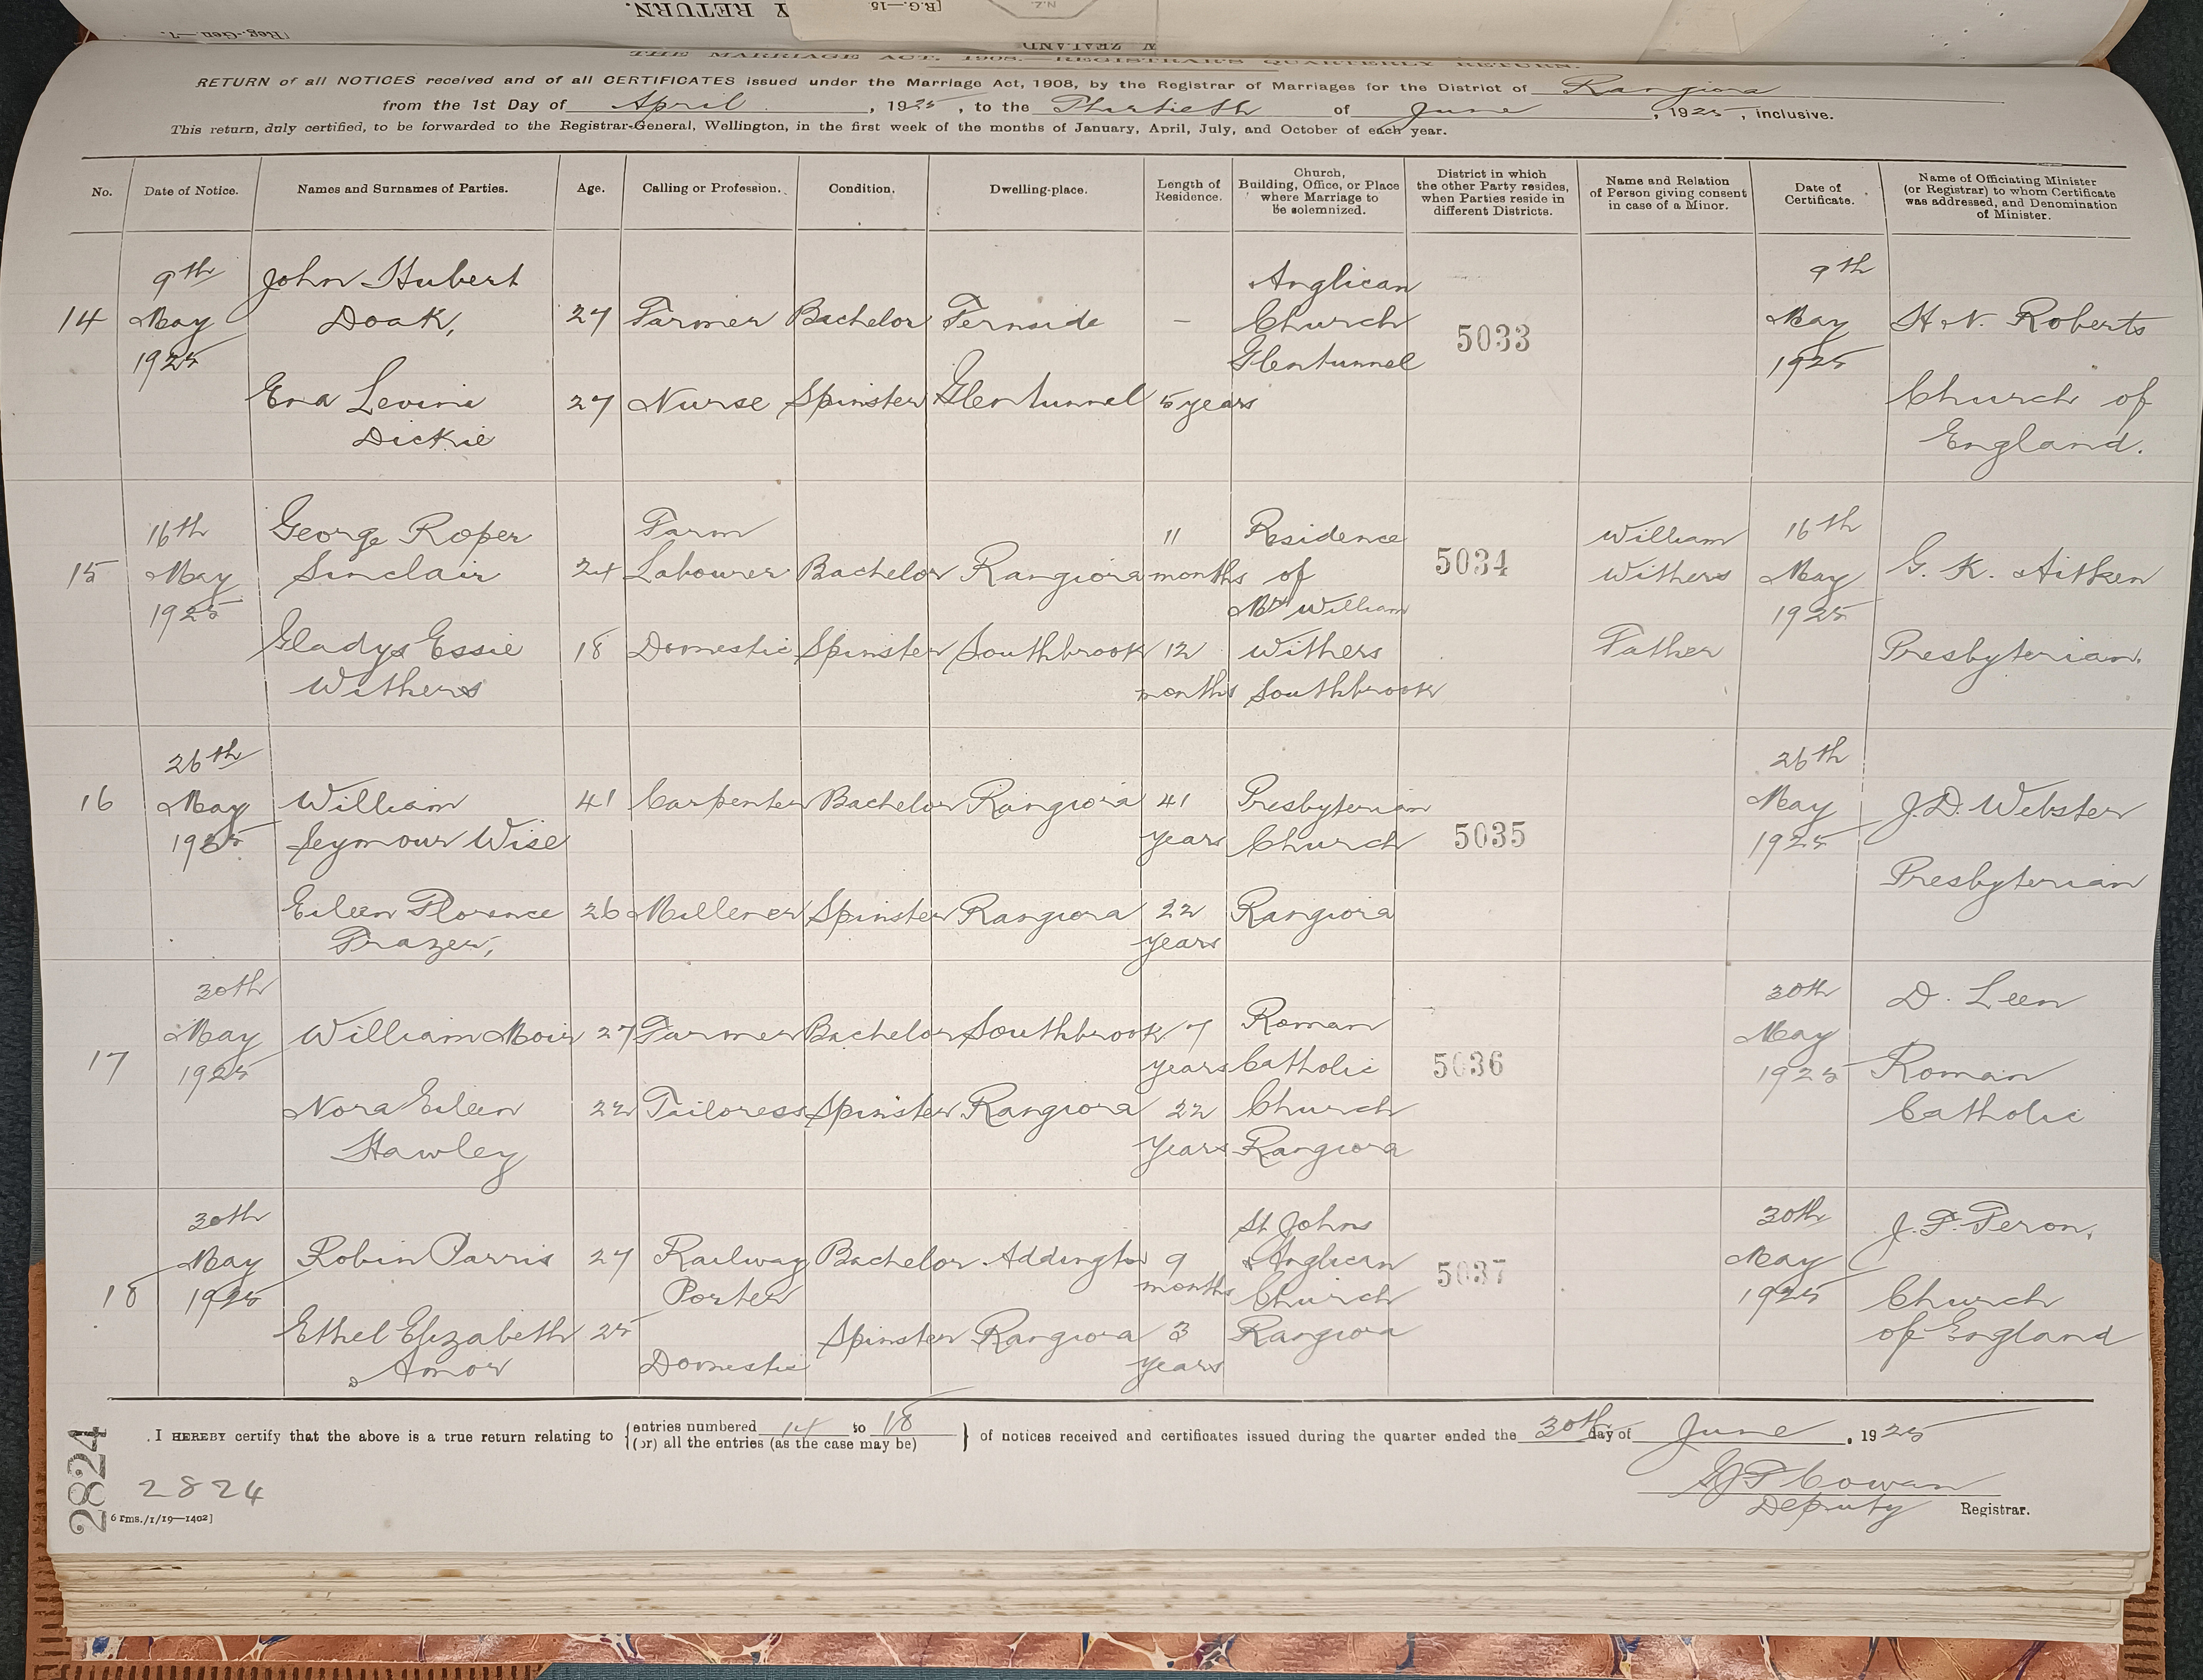 Y RETURN.
[R.G.—15.
N.Z.
[Reg.-Gen.—7.
W ZEALAND
THE MARRIAGE ACT, 1908.—REGISTRAR'S QUARTERLY RETURN.
RETURN of all NOTICES received and of all CERTIFICATES issued under the Marriage Act, 1908, by the Registrar of Marriages for the District of Rangiora
from the 1st Day of April, 1925, to the Thirtieth of June, 1925, inclusive.
This return, duly certified, to be forwarded to the Registrar-General, Wellington, in the first week of the months of January, April, July, and October of each year.
No.
Date of Notice.
Names and Surnames of Parties.
Age.
Calling or Profession.
Condition.
Dwelling-place.
Length of
Residence.
Church,
Building, Office, or Place
where Marriage to
be solemnized.
District in which
the other Party resides,
when Parties reside in
different Districts.
Name and Relation
of Person giving consent
in case of a Minor.
Date of
Certificate.
Name of Officiating Minister
(or Registrar) to whom Certificate
was addressed, and Denomination
of Minister.
14
9th
May
1925
John Hubert
Doak,
27
Farmer
Bachelor
Fernside
—
Anglican
Church
Glentunnel
5033
9th
May
1925
H. N. Roberts
Church of
England.
Ena Levina
Dickie
27
Nurse
Spinster
Glentunnel
5 years
15
16th
May
1925
George Roper
Sinclair
24
Farm
Labourer
Bachelor
Rangiora
11
months
Residence
of
Mr William
Withers
Southbrook
5034
William
Withers
Father
16th
May
1925
G. K. Aitken
Presbyterian.
Gladys Essie
Withers
18
Domestic
Spinster
Southbrook
12
months
16
26th
May
1925
William
Seymour Wise
41
Carpenter
Bachelor
Rangiora
41
years
Presbyterian
Church
Rangiora
5035
26th
May
1925
J. D. Webster
Presbyterian
Eileen Florence
Frazer,
26
Millener
Spinster
Rangiora
22
years
17
30th
May
1925
William Moir
27
Farmer
Bachelor
Southbrook
7
years
Roman
Catholic
Church
Rangiora
5036
30th
May
1925
D. Leen
Roman
Catholic
Nora Eileen
Hawley
22
Tailoress
Spinster
Rangiora
22
Years
18
30th
May
1925
Robin Parris
27
Railway
Porter
Bachelor
Addington
9
months
St Johns
Anglican
Church
Rangiora
5037
30th
May
1925
J. F. Feron.
Church
of England
Ethel Elizabeth
Amor
25
Domestic
Spinster
Rangiora
3
years
I HEREBY certify that the above is a true return relating to {entries numbered 14 to 18
(or) all the entries (as the case may be)} of notices received and certificates issued during the quarter ended the 30th day of June, 1925
Cowan
Deputy Registrar.
2824
2824
6 rms./1/19—1402]